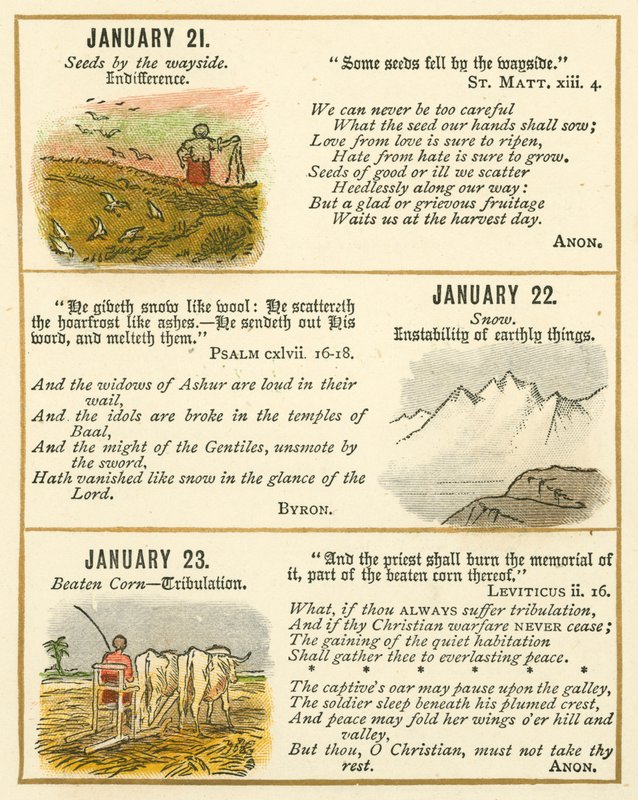 JANUARY 21.
Seeds by the wayside.
Indifference.
"Some seeds fell by the wayside."
ST. MATT. xiii. 4.
We can never be too careful
What the seed our hands shall sow;
Love from love is sure to ripen,
Hate from hate is sure to grow.
Seeds of good or ill we scatter
Heedlessly along our way:
But a glad or grievous fruitage
Waits us at the harvest day.
ANON.
"He giveth snow like wool: He scattereth
the hoarfrost like ashes.—He sendeth out His
word, and melteth them."
PSALM cxlvii. 16-18.
And the widows of Ashur are loud in their
wail,
And the idols are broke in the temples of
Baal,
And the might of the Gentiles, unsmote by
the sword,
Hath vanished like snow in the glance of the
Lord.
BYRON.
JANUARY 22.
Snow.
Instability of earthly things.
JANUARY 23.
Beaten Corn—Tribulation.
"And the priest shall burn the memorial of
it, part of the beaten corn thereof."
LEVITICUS ii. 16.
What, if thou ALWAYS suffer tribulation,
And if thy Christian warfare NEVER cease;
The gaining of the quiet habitation
Shall gather thee to everlasting peace.
* * * * * *
The captive's oar may pause upon the galley,
The soldier sleep beneath his plumed crest,
And peace may fold her wings o'er hill and
valley,
But thou, O Christian, must not take thy
rest. ANON.